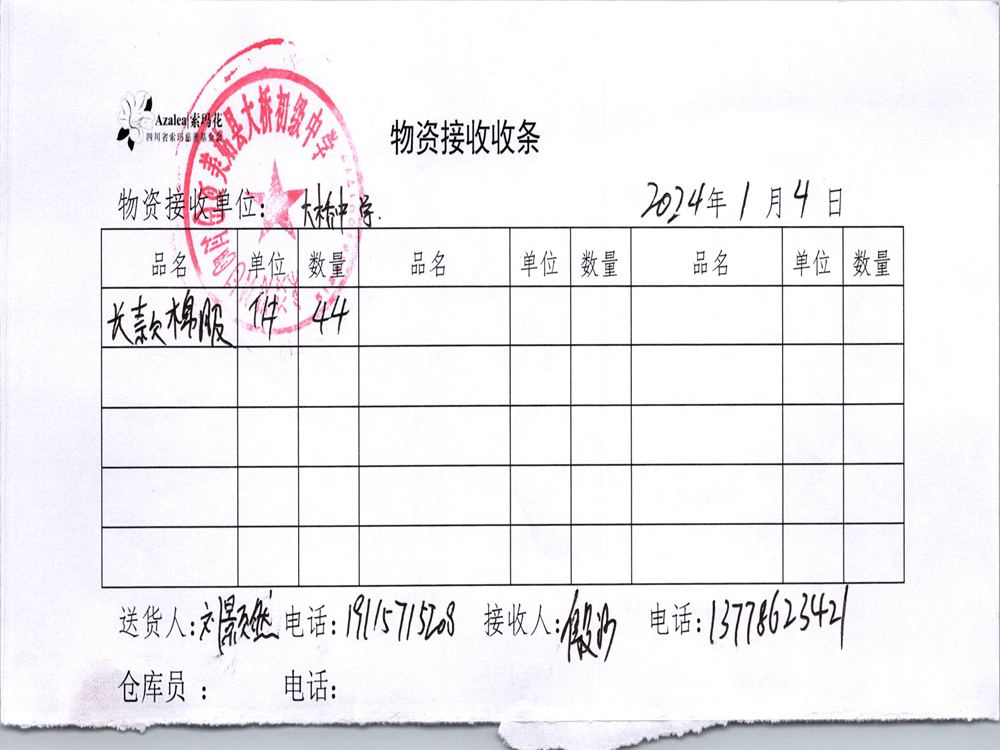 Azalea 索玛花
四川省索玛慈善基金会
美姑县大桥初级中学
物资接收收条
物资接收单位: 大桥中学. 2024年 1 月 4 日
品名 单位 数量 品名 单位 数量 品名 单位 数量
长款棉服 件 44
送货人: 刘景然 电话: 19115715208 接收人: 电话: 13778623421
仓库员 : 电话: